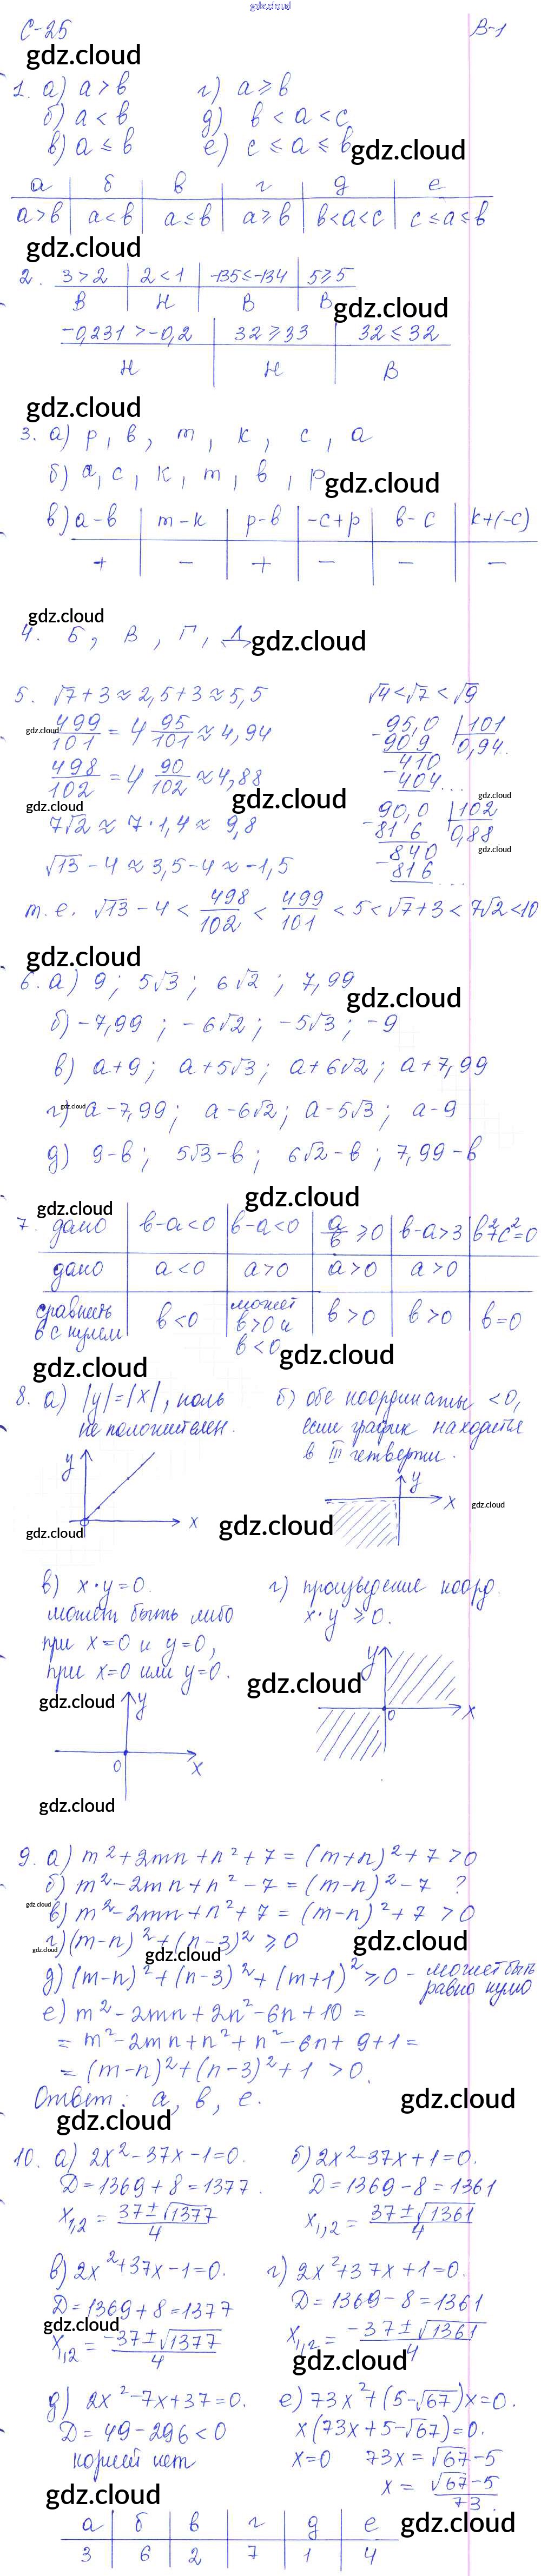 gdz.cloud
С-25
В-1
gdz.cloud
1. а) a > b г) a ⩾ b
б) a < b д) b < a < c
в) a ≤ b е) c ≤ a ≤ b
gdz.cloud
а | б | в | г | д | е
a>b | a<b | a≤b | a⩾b | b<a<c | c≤a≤b
gdz.cloud
2. 3>2 | 2<1 | -135≤-134 | 5⩾5
В | Н | В | В
gdz.cloud
-0,231 >-0,2 | 32⩾33 | 32≤32
Н | Н | В
gdz.cloud
3. а) p, b, m, k, c, a
б) a, c, k, m, b, p
gdz.cloud
в) a-b | m-k | p-b | -c+p | b-c | k+(-c)
+ | - | + | - | - | -
gdz.cloud
4. Б, В, Г, Д
gdz.cloud
5. √7+3≈2,5+3≈5,5 √4<√7<√9
499/101 = 4 95/101 ≈ 4,94
gdz.cloud
95,0 | 101
-909 | 0,94
410
-404...
498/102 = 4 90/102 ≈ 4,88
gdz.cloud
gdz.cloud
gdz.cloud
90,0 | 102
-816 | 0,88
840
-816...
gdz.cloud
7√2 ≈ 7·1,4 ≈ 9,8
√13-4≈3,5-4≈-1,5
т.е. √13-4 < 498/102 < 499/101 < 5 < √7+3 < 7√2 <10
gdz.cloud
6. а) 9; 5√3; 6√2; 7,99
gdz.cloud
б) -7,99; -6√2; -5√3; -9
в) a+9; a+5√3; a+6√2; a+7,99
gdz.cloud
г) a-7,99; a-6√2; a-5√3; a-9
д) 9-b; 5√3-b; 6√2-b; 7,99-b
gdz.cloud
gdz.cloud
7. дано | b-a<0 | b-a<0 | a/b ⩾0 | b-a>3 | b²+c²=0
дано | a<0 | a>0 | a>0 | a>0 |
сравнить b с нулем | b<0 | может b>0 и b<0 | b>0 | b>0 | b=0
gdz.cloud
gdz.cloud
8. а) |y|=|x|, ноль
не положителен.
б) обе координаты <0,
если график находится
в III четверти.
y
x
y
x
gdz.cloud
gdz.cloud
gdz.cloud
в) x·y=0.
может быть либо
при x=0 и y=0,
при x=0 или y=0.
г) произведение коорд.
x·y ⩾0.
gdz.cloud
gdz.cloud
y
0
x
y
0
x
gdz.cloud
9. а) m²+2mn+n²+7=(m+n)²+7>0
б) m²-2mn+n²-7=(m-n)²-7 ?
gdz.cloud
в) m²-2mn+n²+7=(m-n)²+7>0
г) (m-n)²+(n-3)²⩾0
gdz.cloud
gdz.cloud
gdz.cloud
д) (m-n)²+(n-3)²+(m+1)²⩾0 - может быть
равно нулю
е) m²-2mn+2n²-6n+10=
=m²-2mn+n²+n²-6n+9+1=
=(m-n)²+(n-3)²+1>0.
Ответ: а, в, е.
gdz.cloud
gdz.cloud
10. а) 2x²-37x-1=0.
D=1369+8=1377.
x1,2 = 37±√1377/4
б) 2x²-37x+1=0.
D=1369-8=1361
x1,2 = 37±√1361/4
в) 2x²+37x-1=0.
D=1369+8=1377
gdz.cloud
x1,2 = -37±√1377/4
г) 2x²+37x+1=0.
D=1369-8=1361
x1,2 = -37±√1361/4
gdz.cloud
д) 2x²-7x+37=0.
D=49-296<0
корней нет
е) 73x²+(5-√67)x=0.
x(73x+5-√67)=0.
x=0 73x=√67-5
x= √67-5/73.
gdz.cloud
gdz.cloud
а | б | в | г | д | е
3 | 6 | 2 | 7 | 1 | 4